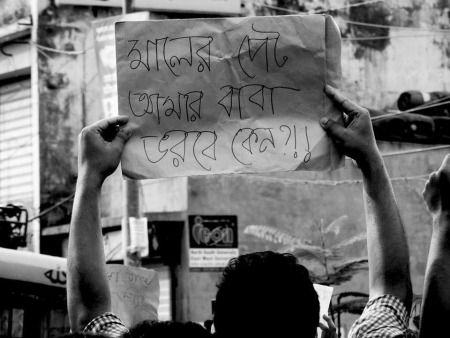 মালের পেট
আমার বাবা
ভরবে কেন?!!